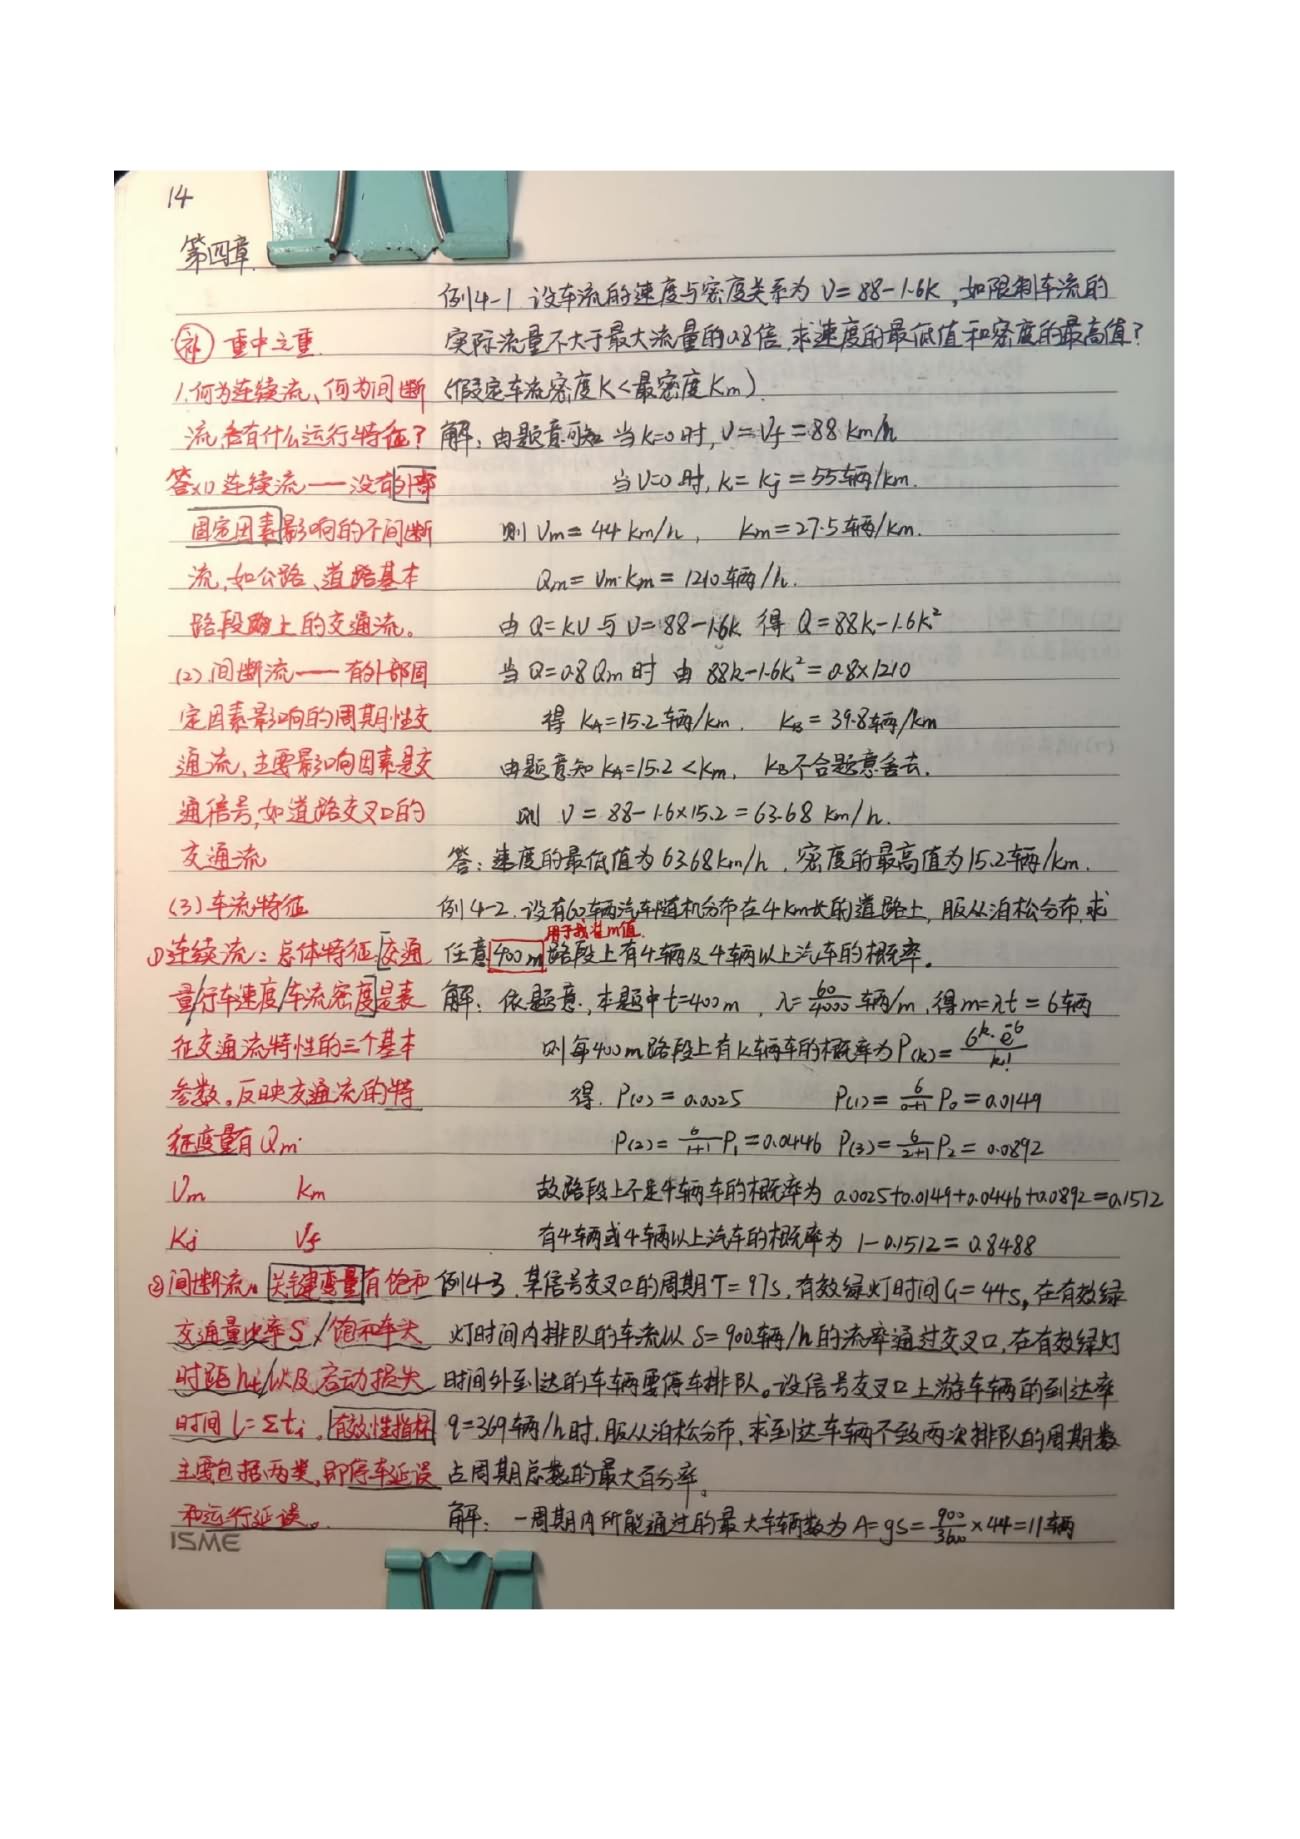 14
第四章.
补 重中之重.
1.何为连续流、何为间断
流,各有什么运行特征?
答:(1)连续流——没有外部
固定因素影响的不间断
流,如公路、道路基本
路段上的交通流。
(2)间断流——有外部固
定因素影响的周期性交
通流,主要影响因素是交
通信号,如道路交叉口的
交通流
(3)车流特征
①连续流:总体特征:交通
量/行车速度/车流密度是表
征交通流特性的三个基本
参数。反映交通流的特
征度量有Qm.
Vm Km
Kj Vf
②间断流。关键变量有饱和
交通量比率S/饱和车头
时距ht/以及启动损失
时间l=Σti.有效性指标
主要包括两类,即停车延误
和运行延误。
ISME
例4-1 设车流的速度与密度关系为V=88-1.6K,如限制车流的
实际流量不大于最大流量的0.8倍,求速度的最低值和密度的最高值?
(假定车流密度K<最密度Km).
解:由题意可知 当K=0时,V=Vf=88 km/h
当V=0时,K=Kj=55辆/km.
则 Vm=44 km/h, Km=27.5辆/km.
Qm=Vm·Km=1210辆/h.
由Q=KV与V=88-1.6K 得 Q=88K-1.6K²
当Q=0.8Qm时 由 88K-1.6K²=0.8×1210
得 KA=15.2辆/km. KB=39.8辆/km
由题意知KA=15.2<Km, KB不合题意舍去.
则 V=88-1.6×15.2=63.68 km/h.
答:速度的最低值为63.68km/h,密度的最高值为15.2辆/km.
例4-2.设有60辆汽车随机分布在4km长的道路上,服从泊松分布,求
用于求m值.
任意400m路段上有4辆及4辆以上汽车的概率.
解:依题意,本题中t=400m,λ=60/4000辆/m,得m=λt=6辆
则每400m路段上有K辆车的概率为P(k)=6^k·e^-6/k!
得.P(0)=0.0025 P(1)=6/(0+1)P0=0.0149
P(2)=6/(1+1)P1=0.0446 P(3)=6/(2+1)P2=0.0892
故路段上不足4辆车的概率为0.0025+0.0149+0.0446+0.0892=0.1512
有4辆或4辆以上汽车的概率为 1-0.1512=0.8488
例4-3.某信号交叉口的周期T=97s,有效绿灯时间G=44s,在有效绿
灯时间内排队的车流以S=900辆/h的流率通过交叉口,在有效绿灯
时间外到达的车辆要停车排队。设信号交叉口上游车辆的到达率
q=369辆/h时,服从泊松分布,求到达车辆不致两次排队的周期数
占周期总数的最大百分率。
解:一周期内所能通过的最大车辆数为A=gs=900/3600×44=11辆